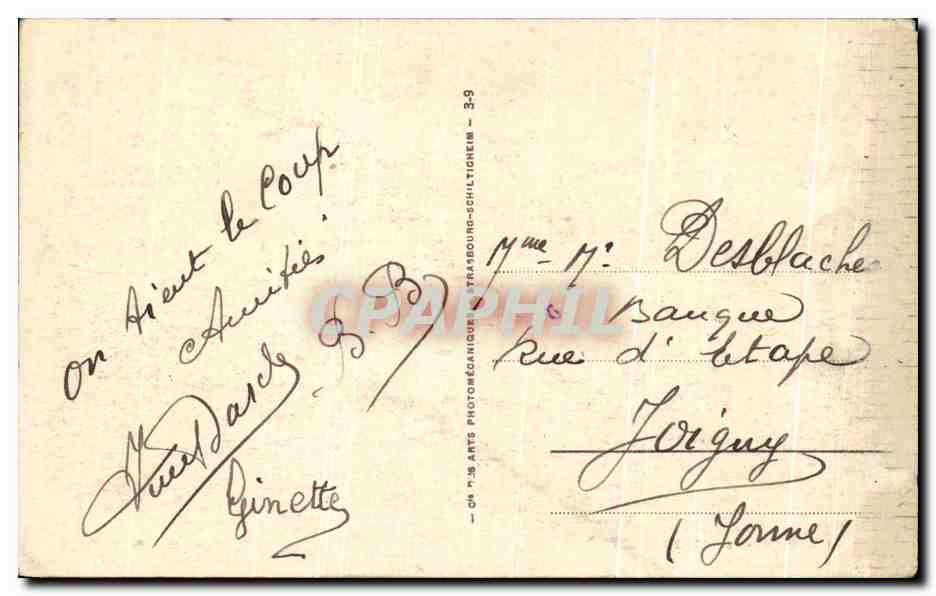 on tient le Coup
Amitiés
B.B.
Ginette
Cie DES ARTS PHOTOMÉCANIQUES, STRASBOURG-SCHILTIGHEIM — 3-9
CPAPHIL
Mme. Mr. Desblache
Banque
Rue d'Etape
Joigny
(Yonne)